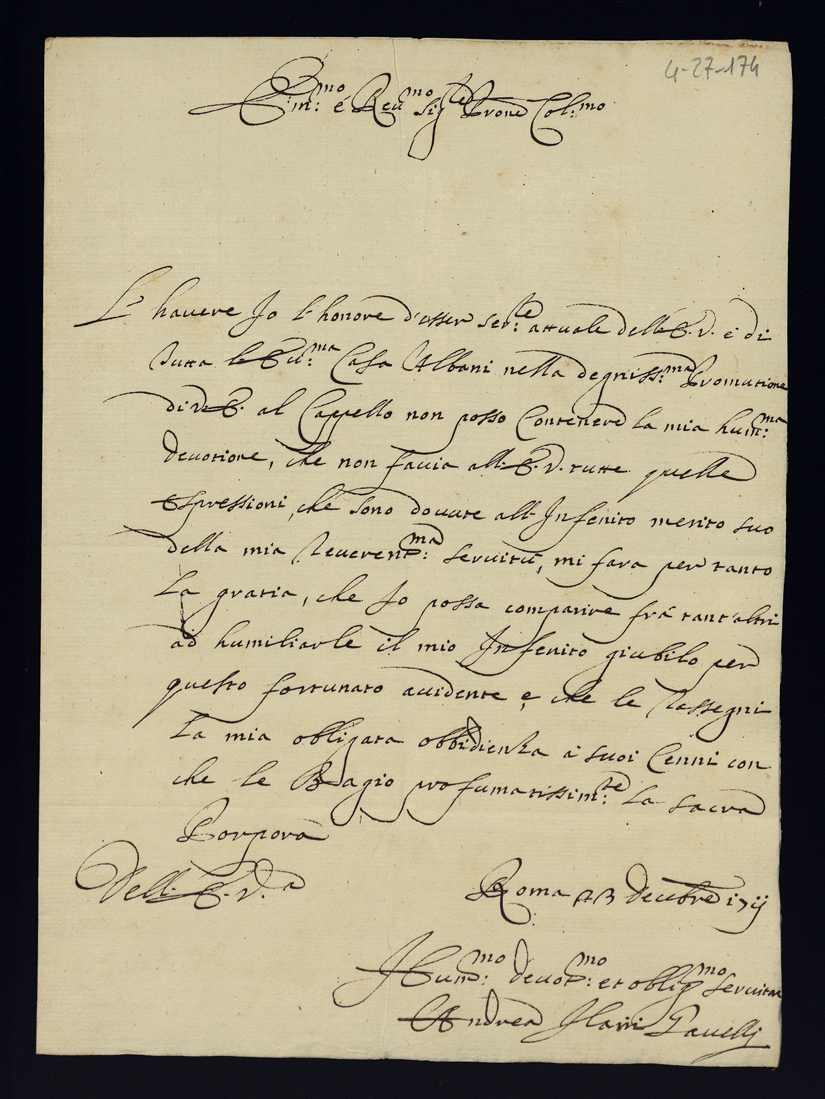 4-27-174
Em:mo é Reu:mo Sig:re Prone Col:mo
L' hauere Jo l'honore d'esser ser:te attuale dell'E.V. e di
tutta le Casa Albani nella degniss:ma Promotione
di V.E. al Cappello non posso Contenere la mia hum:ma
deuotione, che non facia all'E.V. tutte quelle
espressioni, che sono douute all'Infenito merito suo
della mia Reueren:ma seruitù, mi fara per tanto
La gratia, che Jo possa comparire frá tant'altri
ad humiliarle il mio Infenito giubilo per
questo fortunato accidente e, che le Rassegni
La mia obligata obbidienza á suoi Cenni con
che le Bagio profumatissim:te La sacra
Porpora
Dell'E.V.a
Roma 23 decebre 1711
Hum:mo deuot:mo et oblig:mo seruitor
Andrea Ilarii